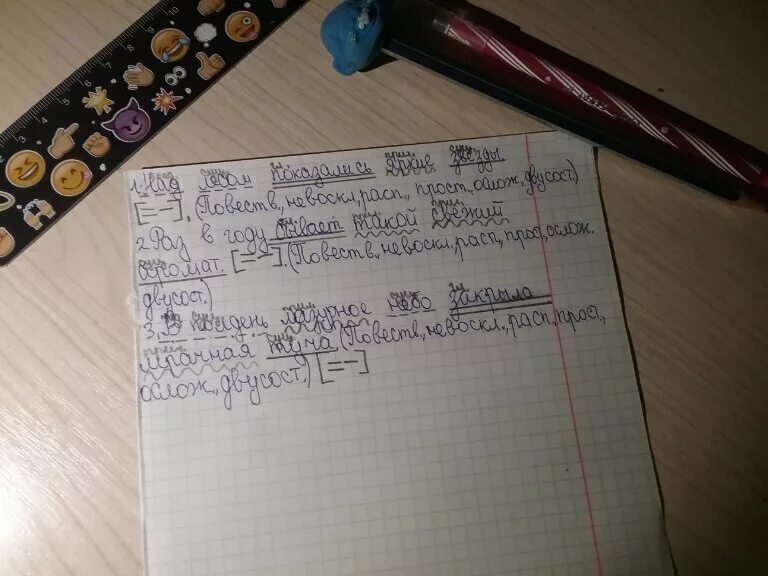 1. Над лесом показались яркие звёзды.
[= –]. (Повеств., невоскл., расп., прост., ослож., двусост.)
2. Раз в году бывает такой свежий
аромат. [= –]. (Повеств., невоскл., расп., прост., ослож.
двусост.)
3. В полдень лазурное небо закрыла
мрачная туча (Повеств., невоскл., расп., прост.,
ослож., двусост.) [= –]